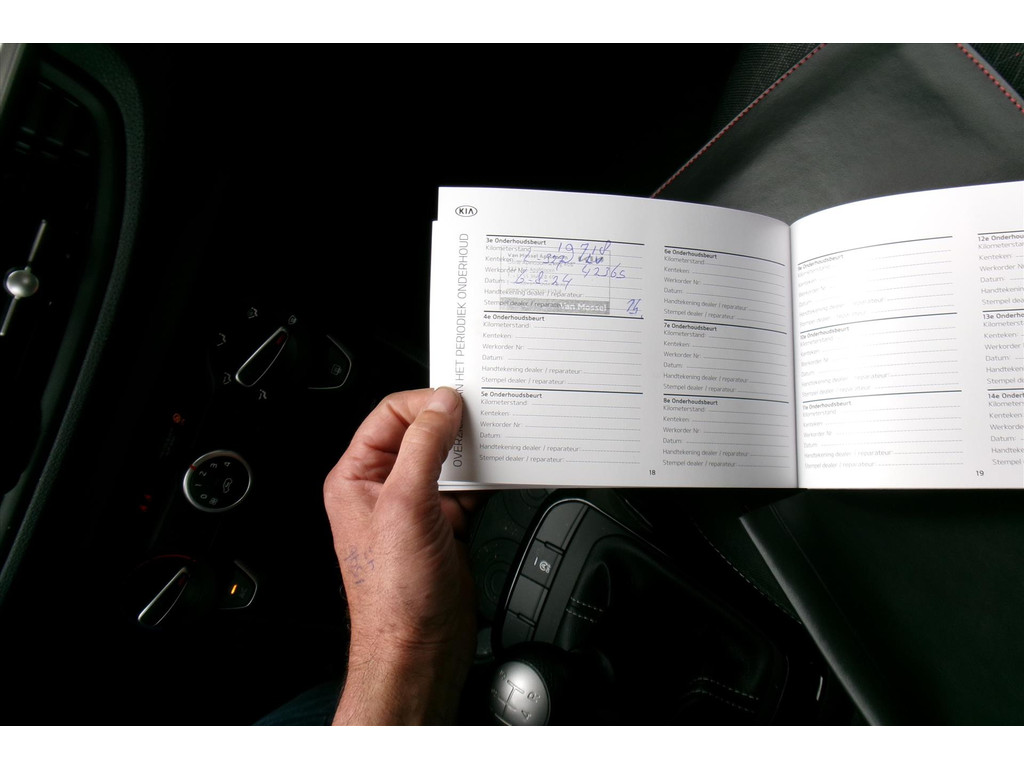 KIA
OVERZ N HET PERIODIEK ONDERHOUD
3e Onderhoudsbeurt
Kilometerstand: 19718
Kenteken:
Werkorder Nr: 42365
Datum: 6-8-24
Handtekening dealer / reparateur:
Stempel dealer / reparateur:
Van Mossel
4e Onderhoudsbeurt
Kilometerstand:
Kenteken:
Werkorder Nr:
Datum:
Handtekening dealer / reparateur:
Stempel dealer / reparateur:
5e Onderhoudsbeurt
Kilometerstand:
Kenteken:
Werkorder Nr:
Datum:
Handtekening dealer / reparateur:
Stempel dealer / reparateur:
6e Onderhoudsbeurt
Kilometerstand:
Kenteken:
Werkorder Nr:
Datum:
Handtekening dealer / reparateur:
Stempel dealer / reparateur:
7e Onderhoudsbeurt
Kilometerstand:
Kenteken:
Werkorder Nr:
Datum:
Handtekening dealer / reparateur:
Stempel dealer / reparateur:
8e Onderhoudsbeurt
Kilometerstand:
Kenteken:
Werkorder Nr:
Datum:
Handtekening dealer / reparateur:
Stempel dealer / reparateur:
18
9e Onderhoudsbeurt
Kilometerstand:
Kenteken:
Werkorder Nr:
Datum:
Handtekening dealer / reparateur:
Stempel dealer / reparateur:
10e Onderhoudsbeurt
Kilometerstand:
Kenteken:
Werkorder Nr:
Datum:
Handtekening dealer / reparateur:
Stempel dealer / reparateur:
11e Onderhoudsbeurt
Kilometerstand:
Kenteken:
Werkorder Nr:
Datum:
Handtekening dealer / reparateur:
Stempel dealer / reparateur:
12e Onderho
Kilometerstand
Kenteken:
Werkorder Nr:
Datum:
Handtekening
Stempel deal
13e Onderho
Kilometerstand
Kenteken:
Werkorder Nr:
Datum:
Handtekening
Stempel deal
14e Onderh
Kilometerstan
Kenteken:
Werkorder N
Datum:
Handtekenin
Stempel dea
19